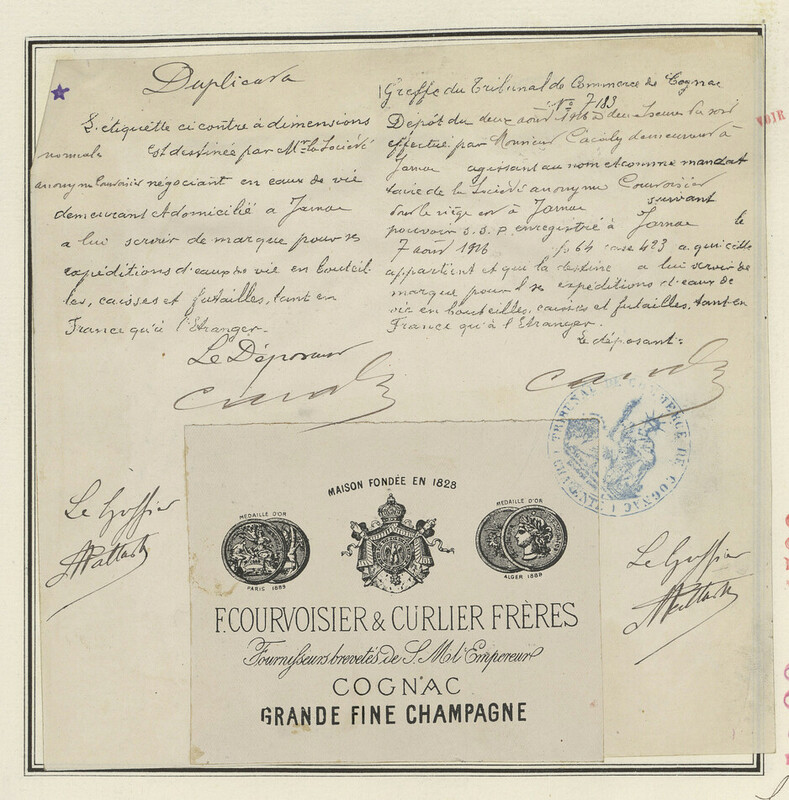 Duplicata
L'étiquette ci contre à dimensions
normale est destinée par Mr la Société
anonyme Courvoisier négociant en eaux de vie
demeurant et domicilié a Jarnac
a lui servir de marque pour ses
expéditions d'eaux de vie en bouteil-
les, caisses et futailles, tant en
France qu'à l'Etranger.
Le Déposant
Greffe du Tribunal de Commerce de Cognac
No 7183
Dépôt du deux août 1916 à deux heures du soir
effectué par Monsieur demeurant à
Jarnac agissant au nom et comme mandat
taire de la Société anonyme Courvoisier
dont le siège est à Jarnac suivant
pouvoir s.s.p. enregistré à Jarnac le
7 août 1916 fo 64 case 423 a qui elle
appartient et qui la destine a lui servir de
marque pour ses expéditions d'eaux de
vie en bouteilles, caisses et futailles, tant en
France qu'à l'Etranger.
Le déposant:
TRIBUNAL DE COMMERCE DE COGNAC
(CHARENTE)
Le Greffier
MAISON FONDÉE EN 1828
MEDAILLE D'OR
PARIS 1889
MEDAILLE D'OR
ALGER 1889
F. COURVOISIER & CURLIER FRÈRES
Fournisseurs brevetés de S. M. l'Empereur
COGNAC
GRANDE FINE CHAMPAGNE
Le Greffier
VOIR